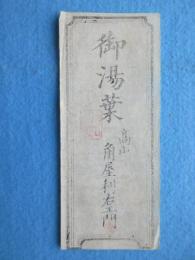 御湯葉
高山
角屋利右エ門